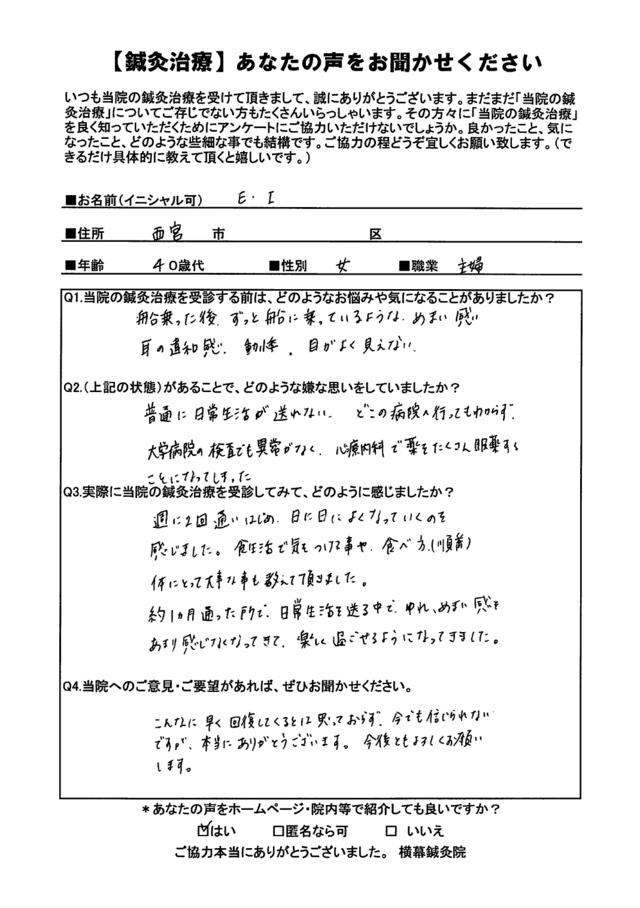 【鍼灸治療】あなたの声をお聞かせください
いつも当院の鍼灸治療を受けて頂きまして、誠にありがとうございます。まだまだ「当院の鍼
灸治療」についてご存じでない方もたくさんいらっしゃいます。その方々に「当院の鍼灸治療」
を良く知っていただくためにアンケートにご協力いただけないでしょうか。良かったこと、気に
なったこと、どのような些細な事でも結構です。ご協力の程どうぞ宜しくお願い致します。（で
きるだけ具体的に教えて頂くと嬉しいです。）
■お名前（イニシャル可） E・I
■住所 西宮 市 区
■年齢 40歳代 ■性別 女 ■職業 主婦
Q1.当院の鍼灸治療を受診する前は、どのようなお悩みや気になることがありましたか？
船乗った後、ずっと船に乗っているような、めまい感
耳の違和感、動悸、目がよく見えない、
Q2.（上記の状態）があることで、どのような嫌な思いをしていましたか？
普通に日常生活が送れない、どこの病院へ行ってもわからず、
大学病院の検査でも異常がなく、心療内科で薬をたくさん服薬する
ことになってしまった
Q3.実際に当院の鍼灸治療を受診してみて、どのように感じましたか？
週に2回通いはじめ、日に日によくなっていくのを
感じました。食生活で気をつける事や、食べ方、（順番）
体にとって大事な事も教えて頂きました。
約1カ月通った所で、日常生活を送る中で、ゆれ、めまい感を
あまり感じなくなってきて、楽しく過ごせるようになってきました。
Q4.当院へのご意見・ご要望があれば、ぜひお聞かせください。
こんなに早く回復してくるとは思っておらず、今でも信じられない
ですが、本当にありがとうございます。今後ともよろしくお願い
します。
＊あなたの声をホームページ・院内等で紹介しても良いですか？
☑はい □匿名なら可 □ いいえ
ご協力本当にありがとうございました。 横幕鍼灸院